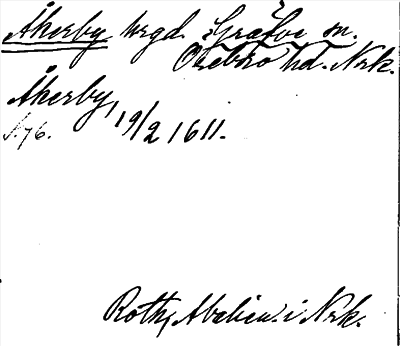 Åkerby hrgd. Gräfve sn.
Örebro hd. Nrk.
Åkerby, 19/2 1611.
s. 76.
Roth, Abelien i Nrk.